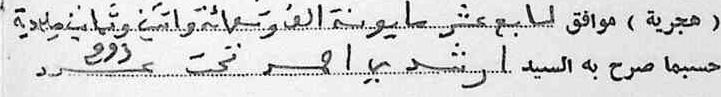 ( هجرية ) موافق لسابع عشر مايو سنة الف وتسعمائة واثنين وثمانين ميلادية
حسبما صرح به السيد ارشدي احمد تحت عدد